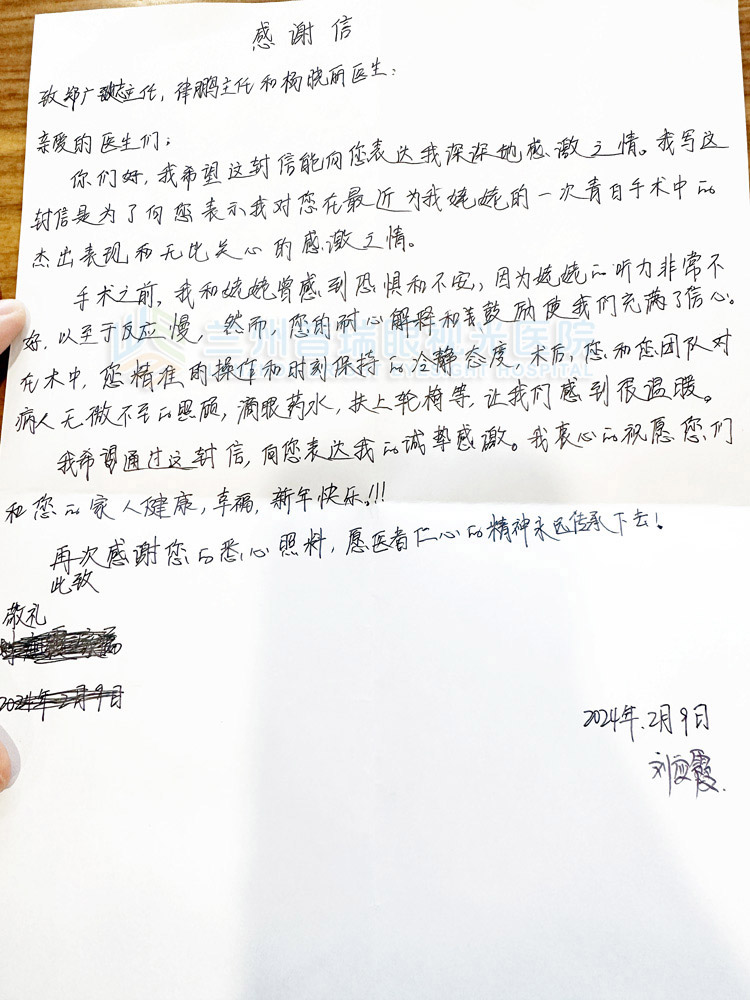 感谢信
致郑广瑛主任，律鹏主任和杨晓丽医生：
亲爱的医生们：
你们好，我希望这封信能向您表达我深深地感激之情。我写这
封信是为了向您表示我对您在最近为我姥姥的一次青白手术中的
杰出表现和无比关心的感激之情。
手术之前，我和姥姥曾感到恐惧和不安，因为姥姥的听力非常不
好，以至于反应慢，然而，您的耐心解释和善鼓励使我们充满了信心。
在术中，您精准的操作和时刻保持的冷静态度。术后，您和您团队对
病人无微不至的照顾，滴眼药水，扶上轮椅等，让我们感到很温暖。
我希望通过这封信，向您表达我的诚挚感激。我衷心的祝愿您们
和您的家人健康，幸福，新年快乐!!!
再次感谢您的悉心照料，愿医者仁心的精神永远传承下去！
此致
敬礼
2024年2月9日
2024年.2月9日
刘应霞
兰州普瑞眼视光医院